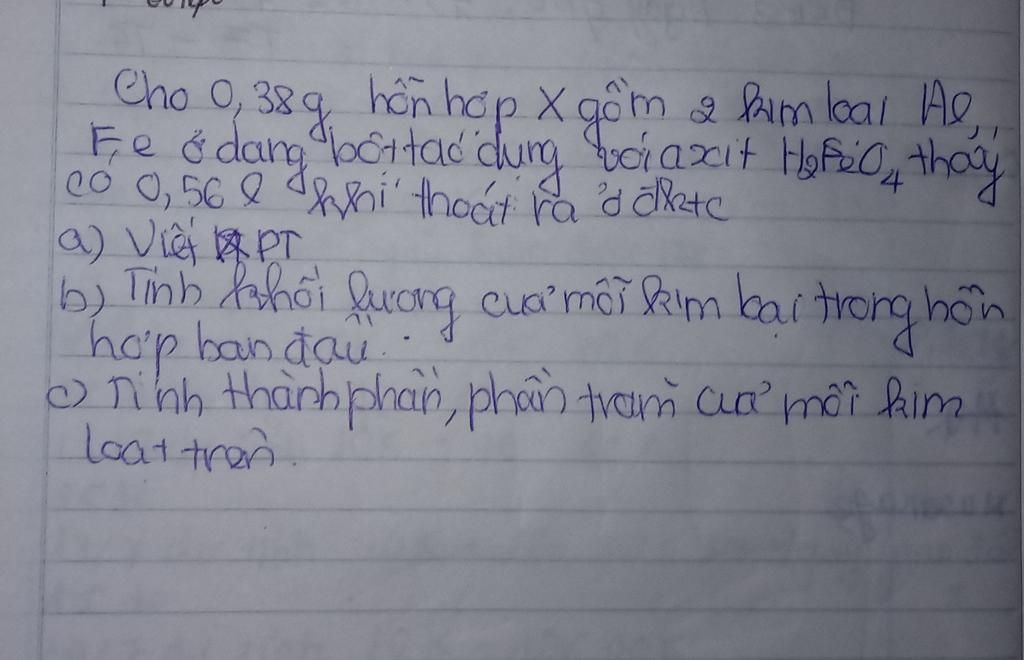 Cho 0,38g hỗn hợp X gồm 2 kim loại Al,
Fe ở dạng bột tác dụng với axit thấy
có 0,56 l khí thoát ra ở đktc
a) Viết PT
b) Tính khối lượng của mỗi kim loại trong hỗn
hợp ban đầu.
c) Tính thành phần, phần trăm của mỗi kim
loại trên.